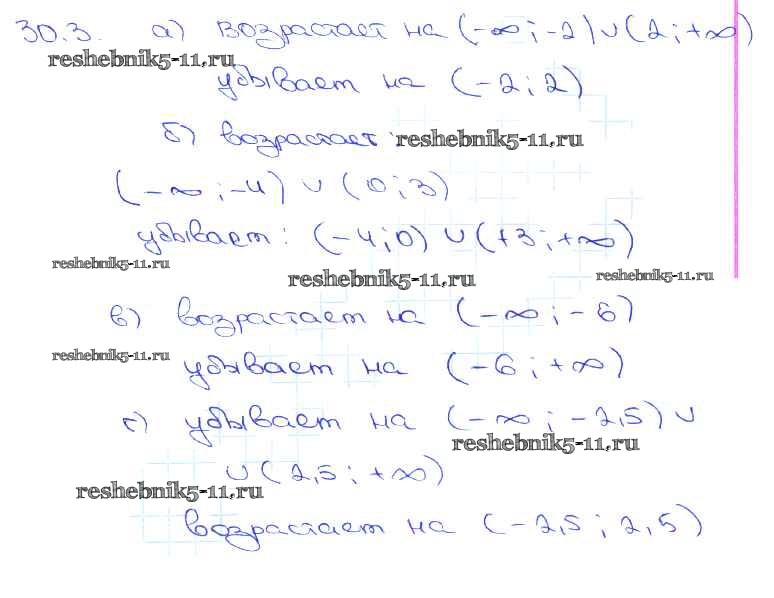 30.3. а) возрастает на (-∞; -2) ∪ (2; +∞)
reshebnik5-11.ru
убывает на (-2; 2)
б) возрастает reshebnik5-11.ru
(-∞; -4) ∪ (0; 3)
убывает: (-4; 0) ∪ (+3; +∞)
reshebnik5-11.ru
reshebnik5-11.ru
reshebnik5-11.ru
в) возрастает на (-∞; -6)
reshebnik5-11.ru
убывает на (-6; +∞)
г) убывает на (-∞; -2,5) ∪
reshebnik5-11.ru
∪ (2,5; +∞)
reshebnik5-11.ru
возрастает на (-2,5; 2,5)